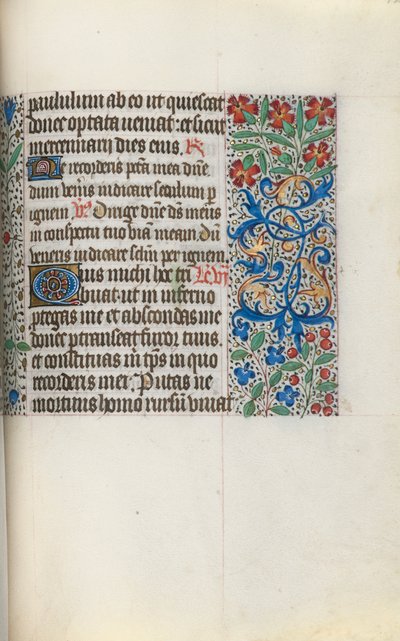 paululum ab eo ut quiescat
donec optata ueniat: et sicut
mercenarii dies eius. R
Ne recorderis pcca mea dne
dum venis iudicare seculum p
ignem V. Dirige dne ds meus
in conspectu tuo via meam. Du
veneris iudicare sclm per ignem.
Quis michi hoc tri
buat ut in inferno
protegas me et abscondas me
donec ptranseat furor tuus.
et constituas m tps in quo
recorderis mei. Putas ne
mortuus homo rursu viuat